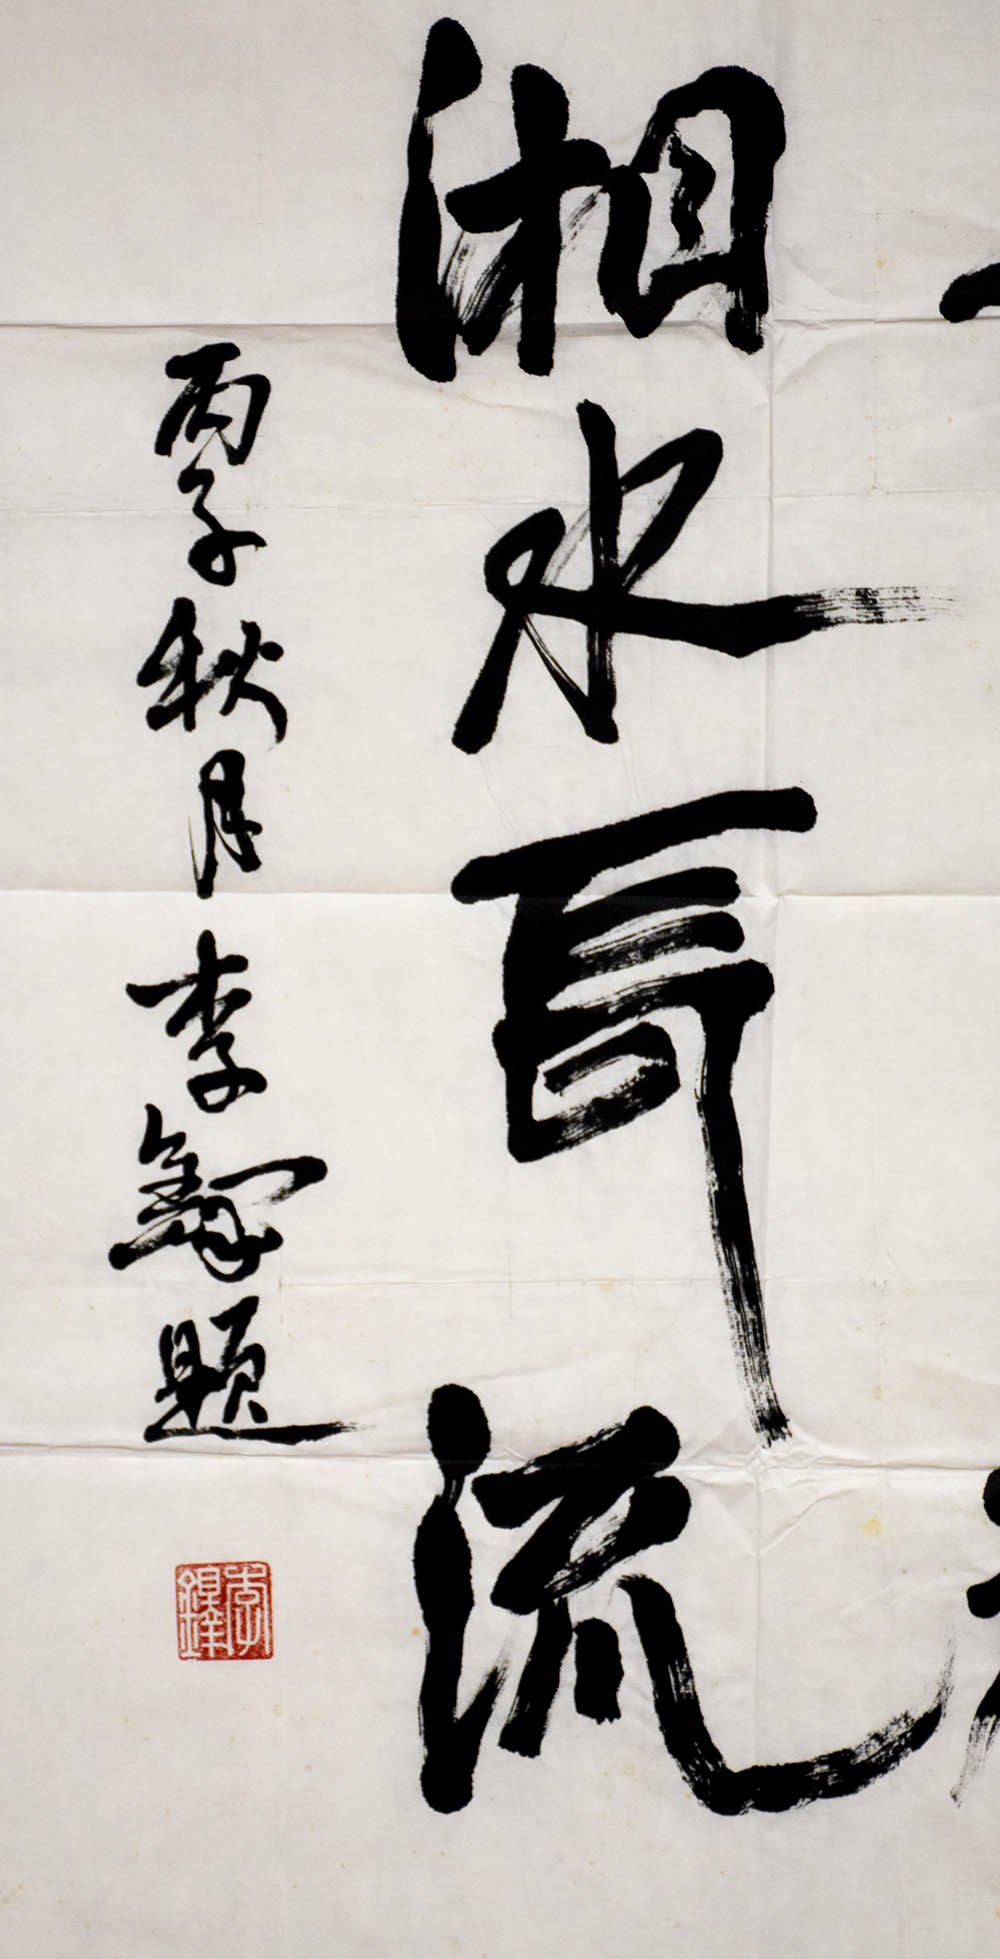 湘水長流
丙子秋月李鐸題
李鐸